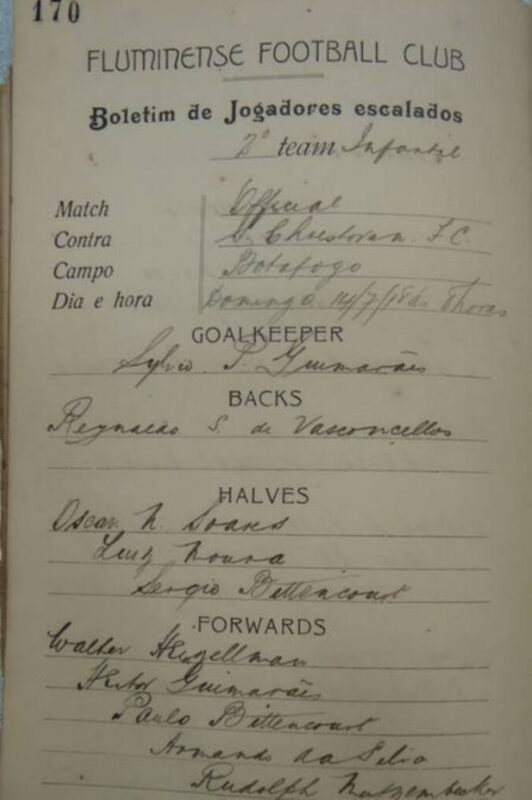 170
FLUMINENSE FOOTBALL CLUB
Boletim de Jogadores escalados
2º team Infantil
Match Official
Contra S. Christovam F.C.
Campo Botafogo
Dia e hora Domingo 14/7/18 ás 8 horas
GOALKEEPER
Sylvio P. Guimarães
BACKS
Reynaldo S. de Vasconcellos
HALVES
Oscar N. Soares
Luiz Moura
Sergio Bittencourt
FORWARDS
Walter
Heitor Guimarães
Paulo Bittencourt
Armando da Silva
Rudolph